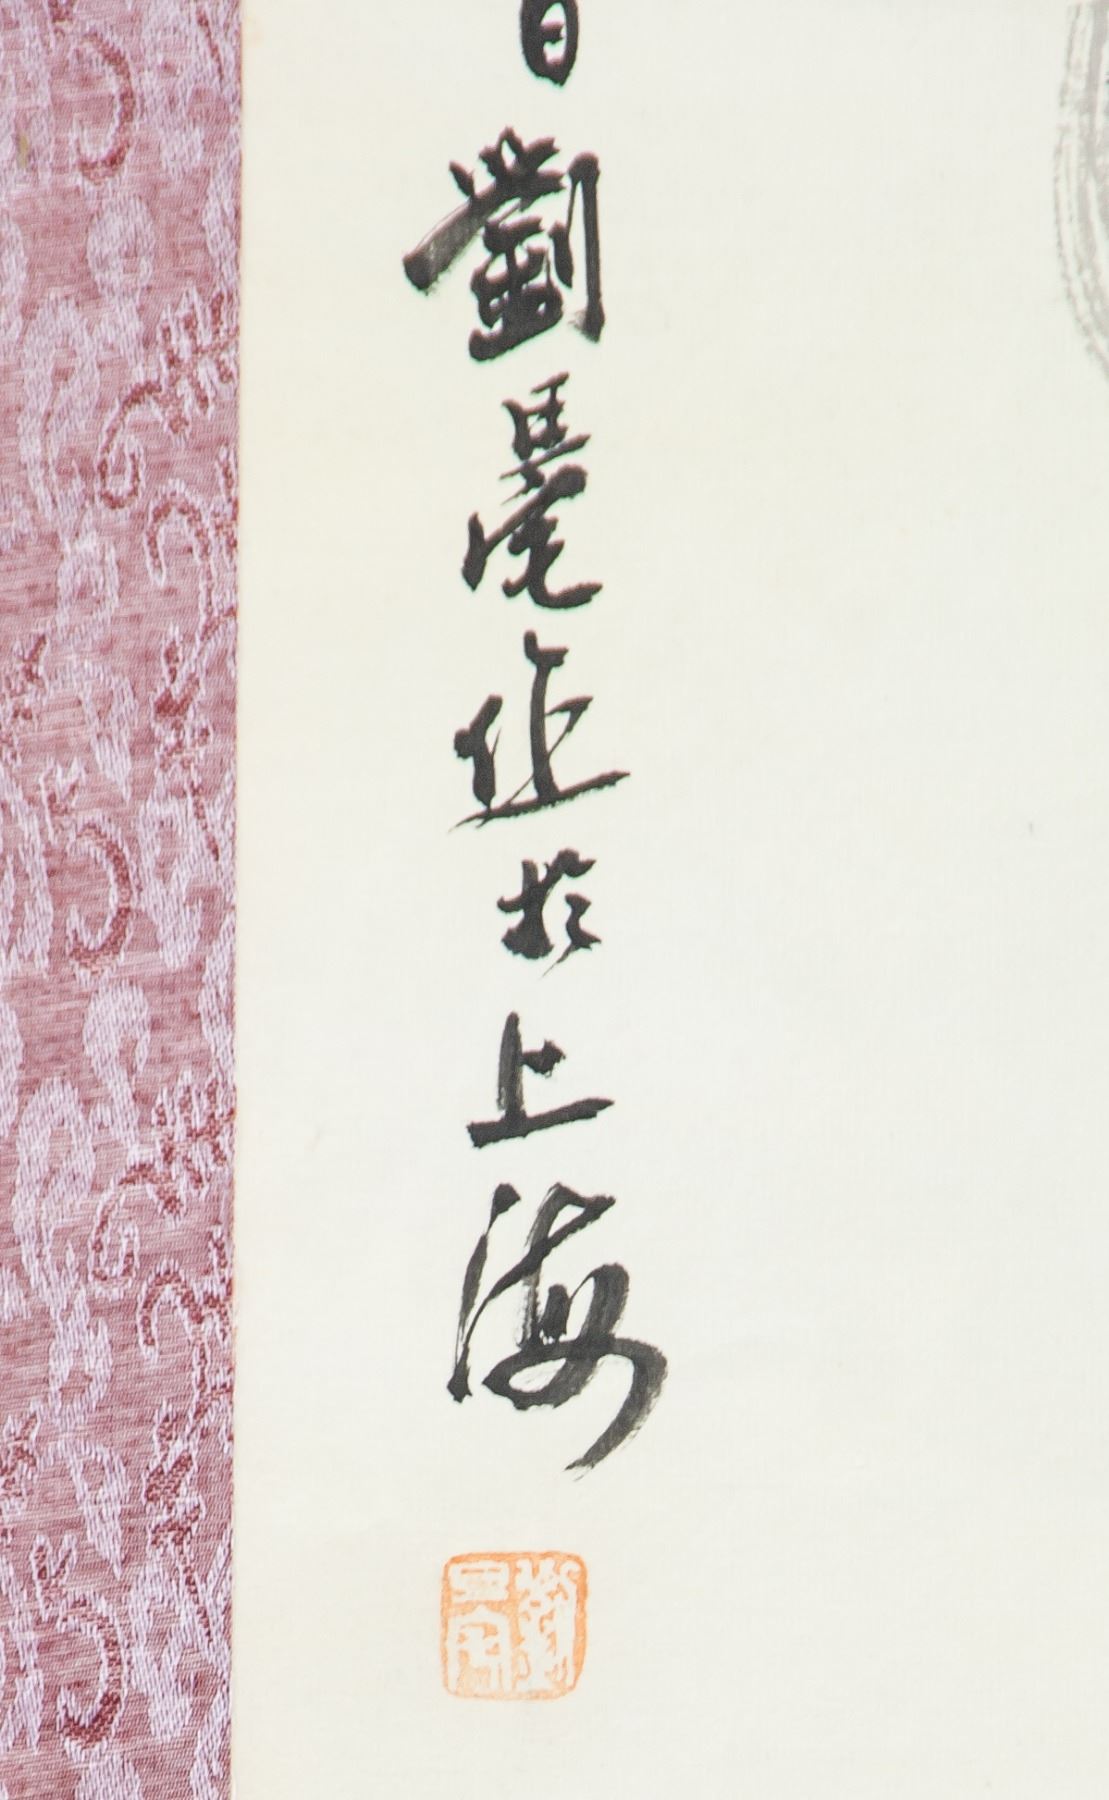 日劉旦宅作於上海
劉旦宅